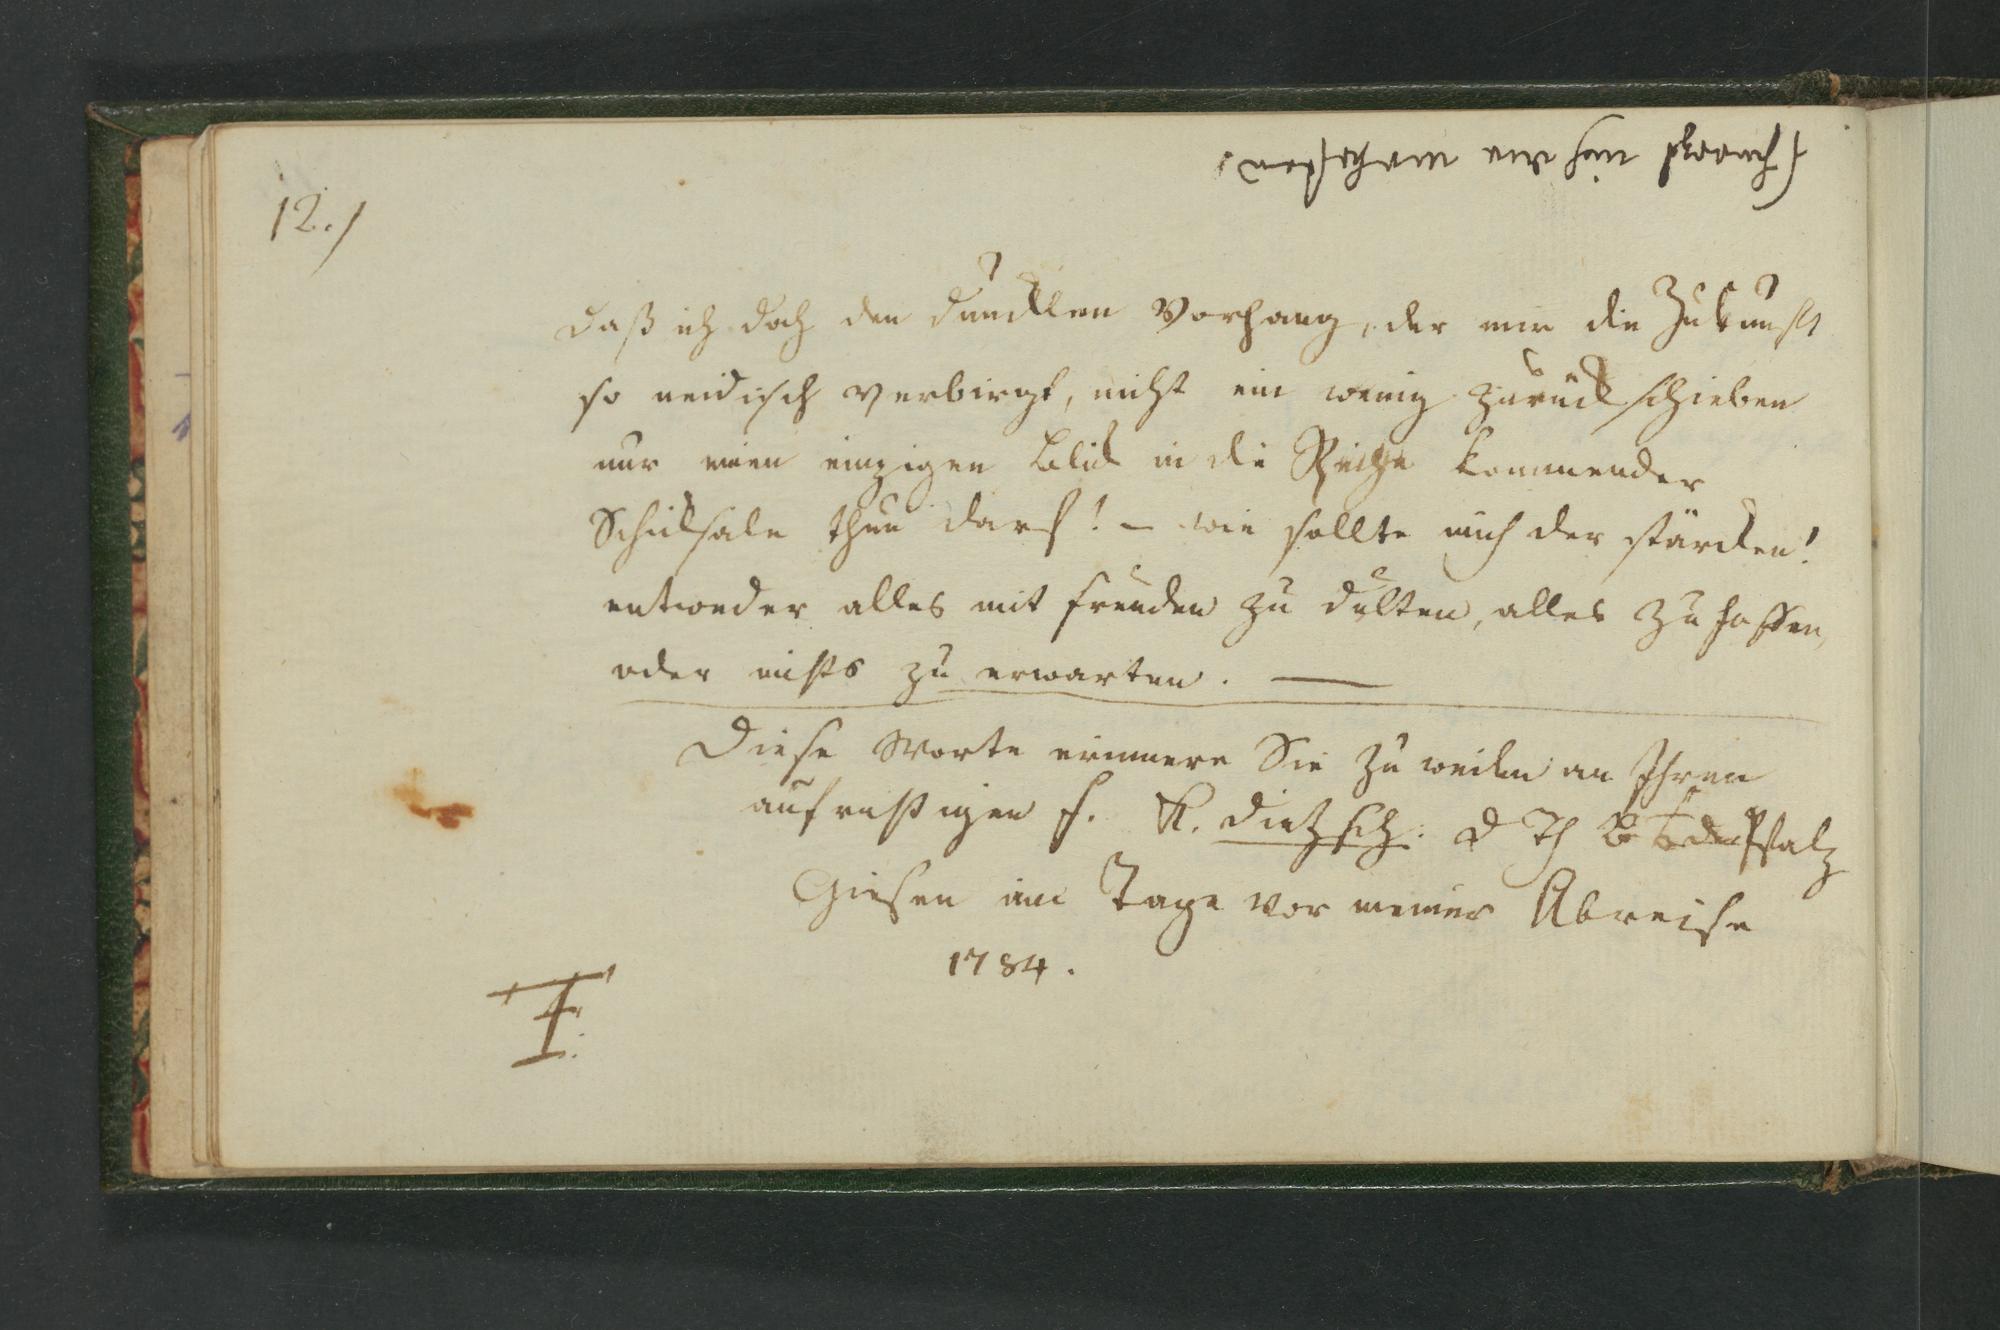 12./
Daß ich doch den duncklen Vorhang, der mir die Zukunft
so neidisch verbirgt, nicht ein wenig zurückschieben
nur einen einzigen Blick in die Reihe kommender
Schicksale thun darf! – wie sollte mich der stärcken!
entweder alles mit freuden zu dulten, alles zu hoffen,
oder nichts zu erwarten. —
Diese Worte erinnern Sie zu weilen an Ihren
aufrichtigen F. K. Dietzsch. d Th B Pfalz
Giesen am Tage vor meiner Abreise
1784.